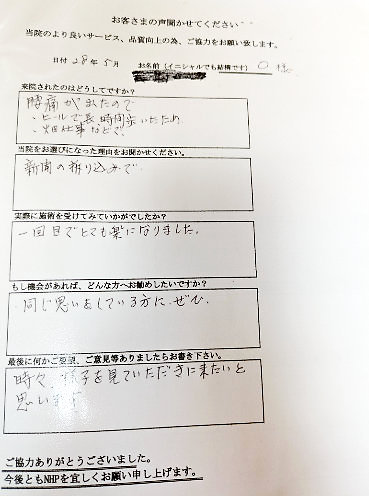 お客さまの声聞かせてください
当院のより良いサービス、品質向上の為、ご協力をお願い致します。
日付 28年 5月 お名前(イニシャルでも結構です) O 様
来院されたのはどうしてですか?
腰痛が出たので
・ヒールで長時間歩いたため
・畑仕事などで
当院をお選びになった理由をお聞かせください。
新聞の折り込みで
実際に施術を受けてみていかがでしたか?
一回目でとても楽になりました。
もし機会があれば、どんな方へお勧めしたいですか?
同じ思いをしている方に、ぜひ。
最後に何かご要望、ご意見等ありましたらお書き下さい。
時々、様子を見ていただきに来たいと
思います
ご協力ありがとうございました。
今後ともNHPを宜しくお願い申し上げます。